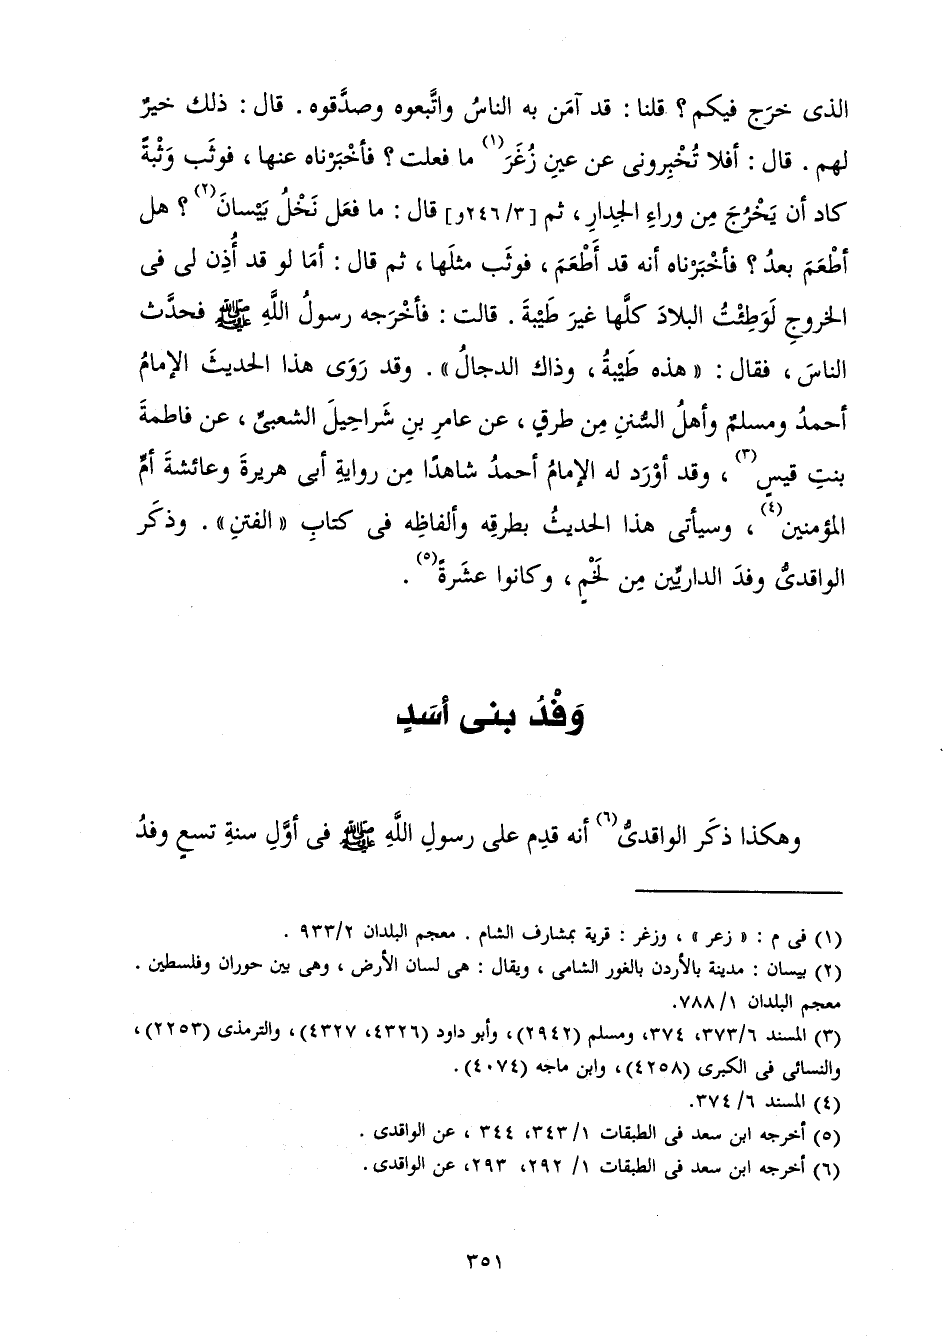 الذى خرَج فيكم؟ قلنا: قد آمَن به الناسُ واتَّبعوه وصدَّقوه. قال: ذلك خيرٌ
لهم. قال: أفلا تُخْبِرونى عن عينِ زُغَرَ(١) ما فعلت؟ فأخْبَرْناه عنها، فوثَب وَثْبةً
كاد أن يَخْرُجَ مِن وراءِ الجِدارِ، ثم [٢٤٦/٣و] قال: ما فعَل نَخْلُ بَيْسانَ(٢)؟ هل
أطْعَمَ بعدُ؟ فأخْبَرْناه أنه قد أَطْعَمَ، فوثَب مثلَها، ثم قال: أمَا لو قد أُذِن لى فى
الخروجِ لَوَطِئْتُ البلادَ كلَّها غيرَ طَيْبةَ. قالت: فأخْرَجه رسولُ اللَّهِ ﷺ فحدَّث
الناسَ، فقال: «هذه طَيْبةُ، وذاك الدجالُ». وقد رَوَى هذا الحديثَ الإمامُ
أحمدُ ومسلمٌ وأهلُ السُّننِ مِن طرقٍ، عن عامرِ بنِ شَراحِيلَ الشعبىِّ، عن فاطمةَ
بنتِ قيسٍ(٣)، وقد أوْرَد له الإمامُ أحمدُ شاهدًا مِن روايةِ أبى هريرةَ وعائشةَ أمِّ
المؤمنين(٤)، وسيأتى هذا الحديثُ بطرقِه وألفاظِه فى كتابِ «الفتنِ». وذكَر
الواقدىُّ وفدَ الداريِّين مِن لَخْمٍ، وكانوا عشَرةً(٥).
وَفْدُ بنى أسَدٍ
وهكذا ذكَر الواقدىُّ(٦) أنه قدِم على رسولِ اللَّهِ ﷺ فى أوَّلِ سنةِ تسعٍ وفدُ
(١) فى م: «زعر»، وزغر: قرية بمشارف الشام. معجم البلدان ٩٣٣/٢.
(٢) بيسان: مدينة بالأردن بالغور الشامى، ويقال: هى لسان الأرض، وهى بين حوران وفلسطين.
معجم البلدان ٧٨٨/١.
(٣) المسند ٣٧٣/٦، ٣٧٤، ومسلم (٢٩٤٢)، وأبو داود (٤٣٢٦، ٤٣٢٧)، والترمذى (٢٢٥٣)،
والنسائى فى الكبرى (٤٢٥٨)، وابن ماجه (٤٠٧٤).
(٤) المسند ٣٧٤/٦.
(٥) أخرجه ابن سعد فى الطبقات ٣٤٣/١، ٣٤٤، عن الواقدى.
(٦) أخرجه ابن سعد فى الطبقات ٢٩٢/١، ٢٩٣، عن الواقدى.
٣٥١